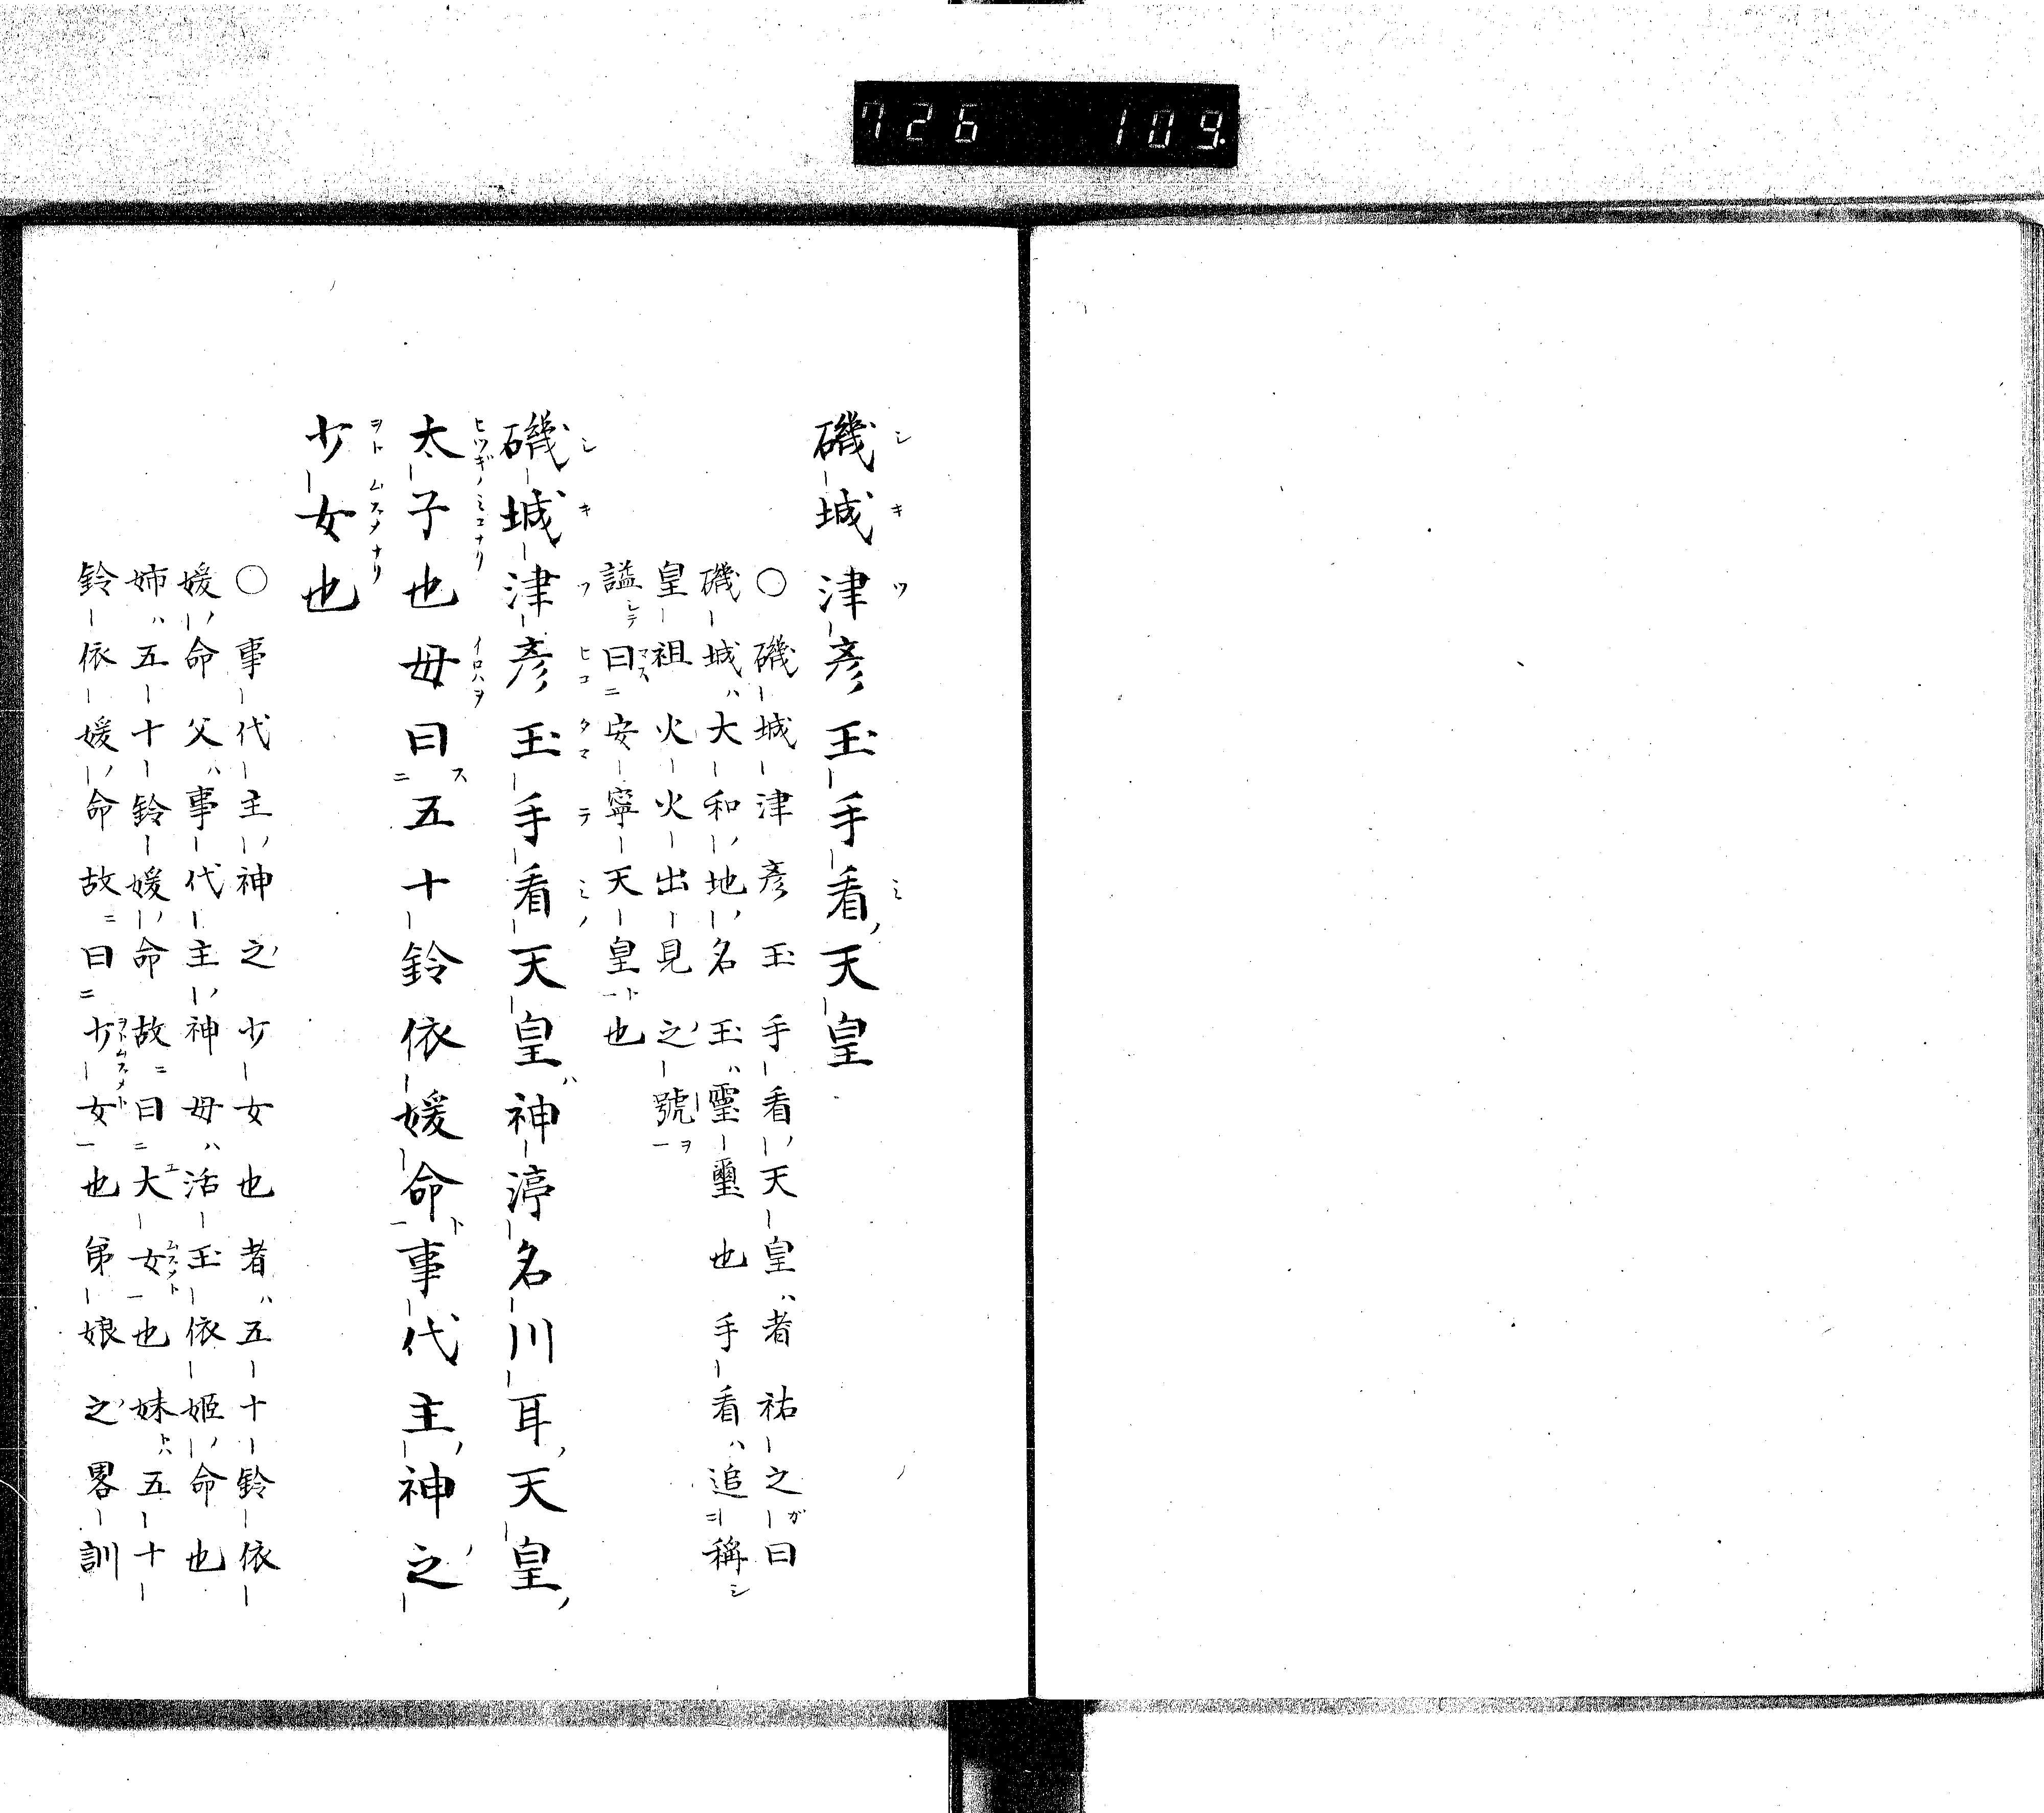 726 109
磯城津彦玉手看天皇
〇磯城津彦玉手看天皇者祐之曰
磯城大和地名玉靈璽也手看追稱
皇祖火火出見之號
謚曰安寧天皇也
磯城津彦玉手看天皇神渟名川耳天皇
太子也母曰五十鈴依媛命事代主神之
少女也
〇事代主神之少女也者五十鈴依
媛命父事代主神母活玉依姬命也
姉五十鈴媛命故曰大女也妹五十
鈴依媛命故曰少女也弟娘之畧訓